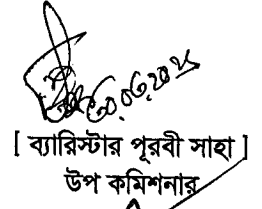 ৩০.০৬.২০২৫
[ ব্যারিস্টার পূরবী সাহা ]
উপ কমিশনার